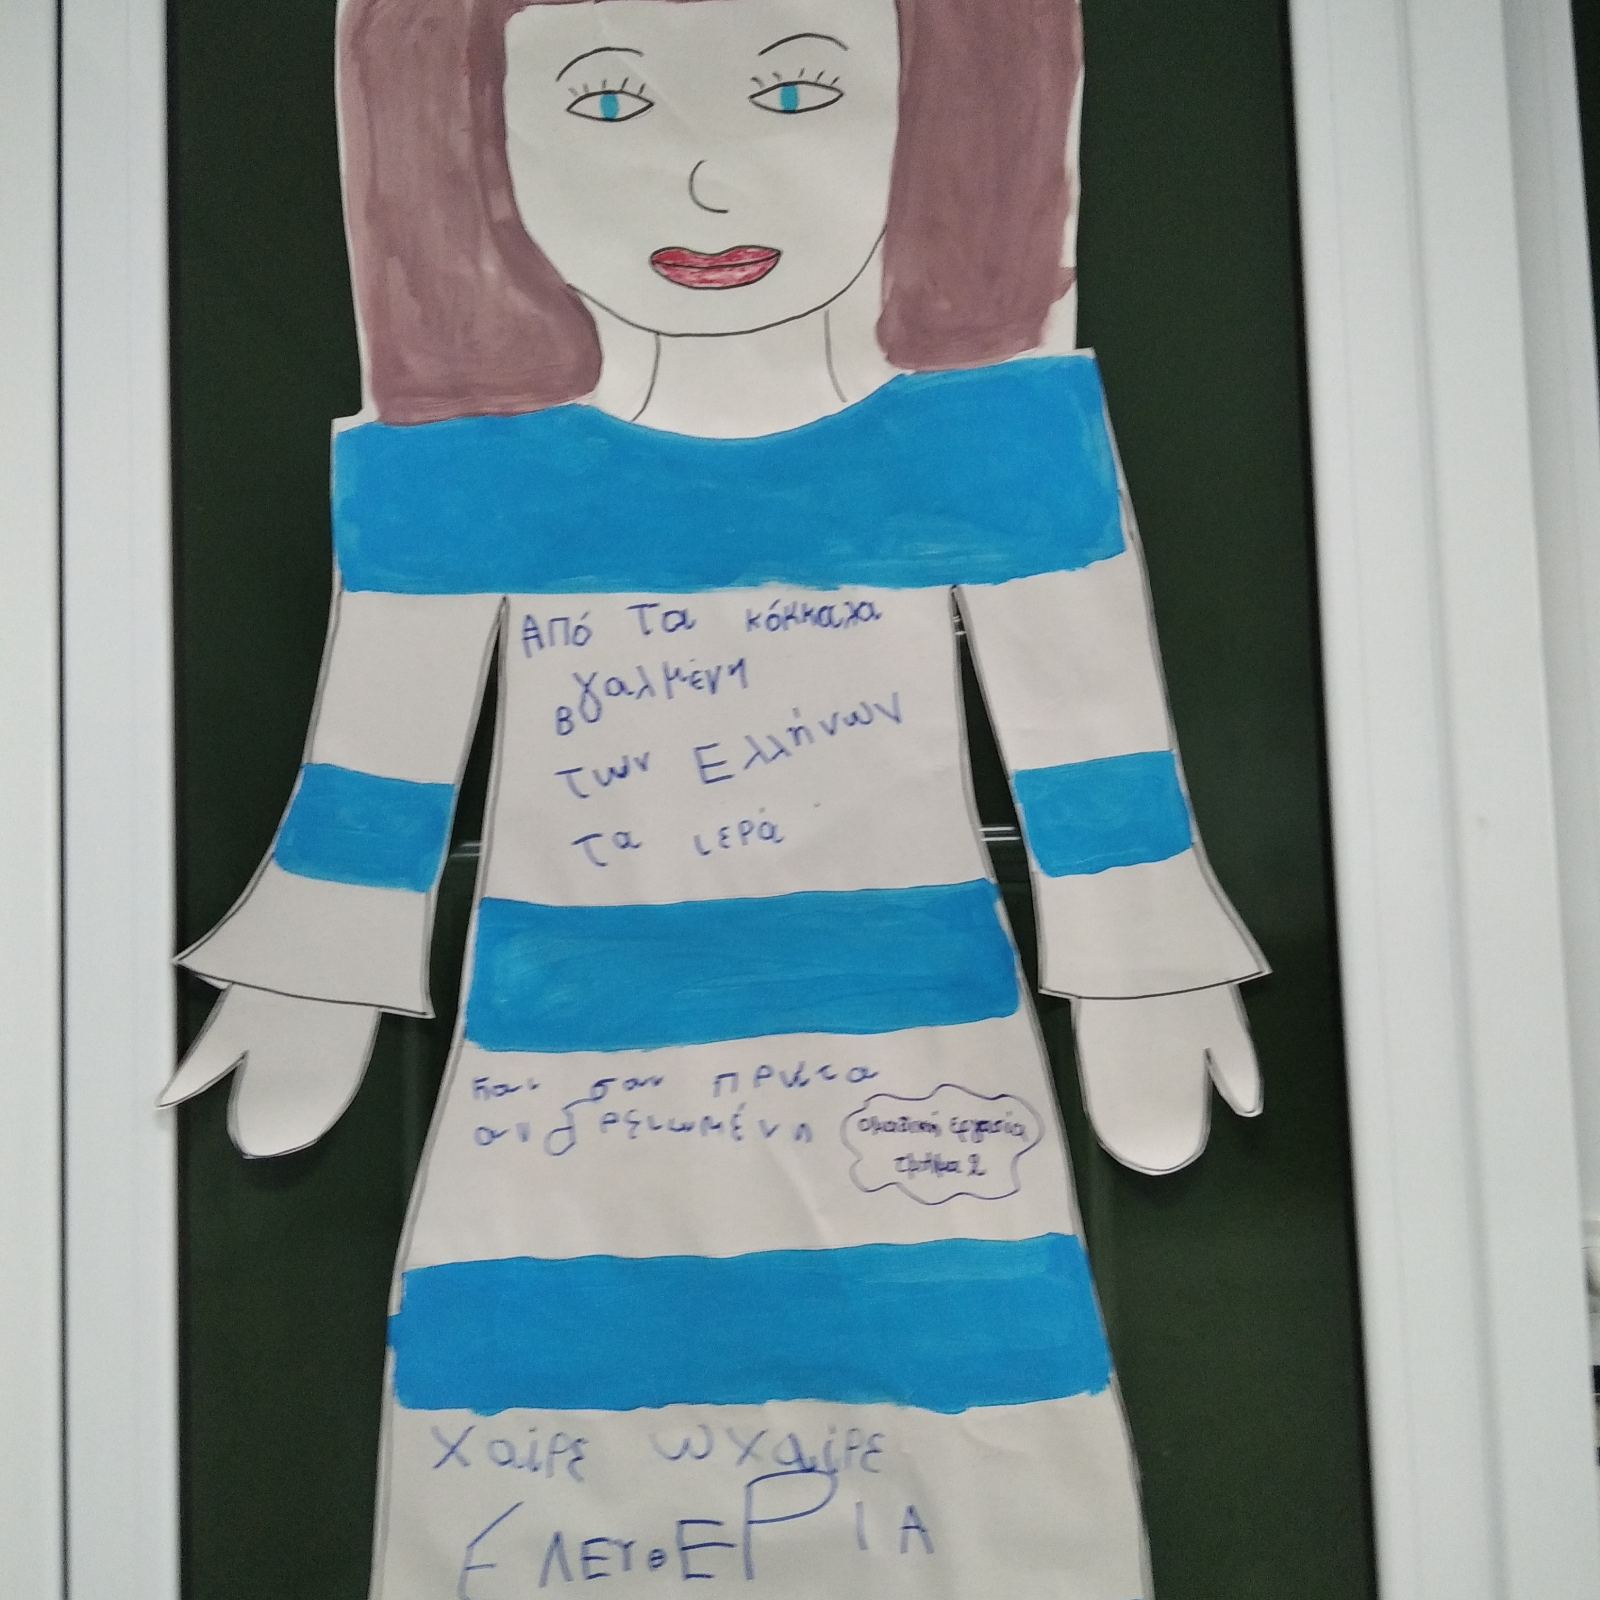 Από τα κόκκαλα
βγαλμένη
των Ελλήνων
τα ιερά
και σαν πρώτα
ανδρειωμένη
ομαδική εργασία
τμήμα 2
χαίρε ω χαίρε
ΕΛΕΥΘΕΡΙΑ